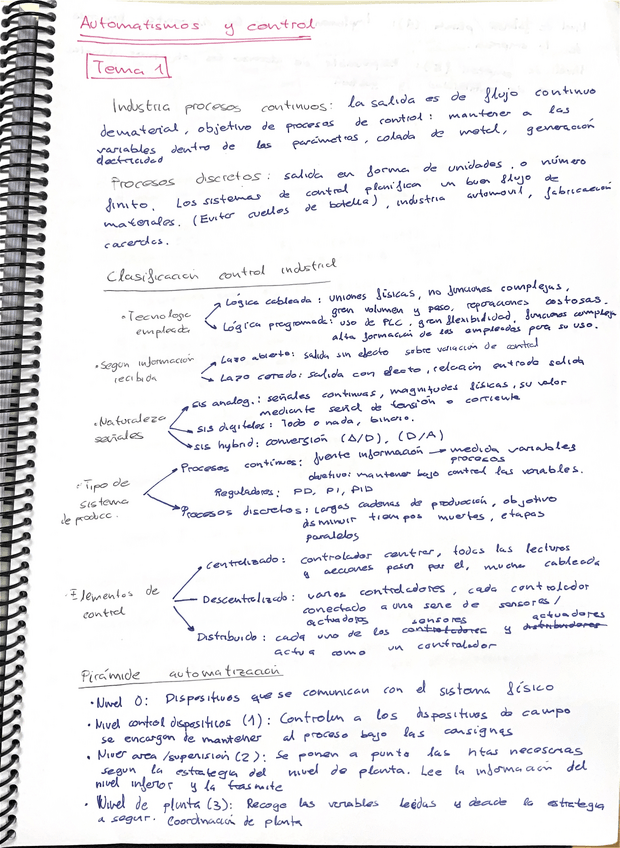 Automatismos y control
Tema 1
Industria procesos continuos: la salida es de flujo continuo
de material, objetivo de procesos de control: mantener a las
variables dentro de los parámetros, colada de metal, generación
electricidad
Procesos discretos: salida en forma de unidades o número
finito. Los sistemas de control planifican un buen flujo de
materiales. (Evitar cuellos de botella), industria automovil, fabricación
cacerolas.
Clasificación control industrial
• Tecnologia
empleada
Lógica cableada: uniones físicas, no funciones complejas,
gran volumen y peso, reparaciones costosas.
Lógica programada: uso de PLC, gran flexibilidad, funciones complejas
alta formación de los empleados para su uso.
• Segun información
recibida
Lazo abierto: salida sin efecto sobre variación de control
Lazo cerrado: salida con efecto, relacion entrada salida
• Naturaleza
señales
sis analog.: señales continuas, magnitudes físicas, su valor
mediante señal de tensión o corriente
sis digitales: Todo o nada, binario.
sis hybrid: conversión (A/D), (D/A)
• Tipo de
sistema
de producc.
Procesos continuos: fuente información → medida variables
procesos
objetivo: mantener bajo control las variables.
Reguladores: PD, PI, PID
Procesos discretos: Largas cadenas de producción, objetivo
disminuir tiempos muertos, etapas
paralelos
• Elementos de
control
Centralizado: controlador central, todas las lecturas
y acciones pasan por el, mucho cableada
Descentralizado: varios controladores, cada controlador
conectado a una serie de sensores/
actuadores
Distribuido: cada uno de los controladores sensores y distribuidores actuadores
actua como un controlador
Pirámide automatización
• Nivel 0: Dispositivos que se comunican con el sistema físico
• Nivel control dispositivos (1): Controlan a los dispositivos de campo
se encargan de mantener al proceso bajo las consignas
• Nivel area/supervisión (2): Se ponen a punto las htas necesarias
segun la estrategia del nivel de planta. Lee la información del
nivel inferior y la trasmite
• Nivel de planta (3): Recoge las variables leídas y decide la estrategia
a seguir. Coordinación de planta